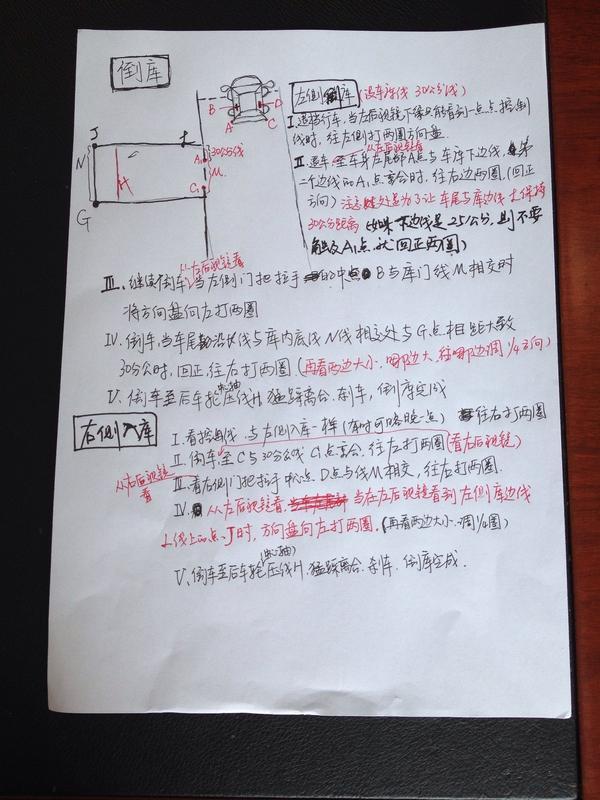 倒库
左侧倒库 (退车库线 30公分线)
I. 退档行车,当左后视镜下缘只能看到一点点 控制
线时,往左侧打两圈方向盘.
从左后视镜看
II. 退车 至车身左尾部A点与车库下边线,第
二个边线的A1点重合时,往右边两圈.(回正
方向) 注意此处是为了让车尾与库边线大保持
30公分距离 (如果下边线是25公分,则不要
触及A1点就回正两圈)
从左后视镜看
III. 继续倒车,当左侧门把拉手的中点B与库门线M相交时
将方向盘向左打两圈
IV. 倒车,当车尾沿线与库内底线N线相交处与G点相距大致
30公分时,回正往右打两圈(再看两边大小,哪边大,往哪边调1/4方向)
V. 倒车至后车轮(中轴)压线H,猛踩离合.刹车,倒库完成
右侧入库
I. 看控制线,与左侧入库一样(有时可略晚一点) 往右打两圈
II. 倒车,至C与30公分线C1点重合,往左打两圈(看右后视镜)
从右后视镜看
III. 看右侧门把拉手中心点D点与线M相交,往右打两圈.
IV. 从左后视镜看 当在左后视镜看到左侧库边线
L线上的点J时,方向盘向左打两圈.(再看两边大小.调1/4圈)
V. 倒车至后车轮(中轴)压线H,猛踩离合.刹车.倒库完成.
J
L
N
G
H
A1
30公分线
M
C1
B
D
A
C